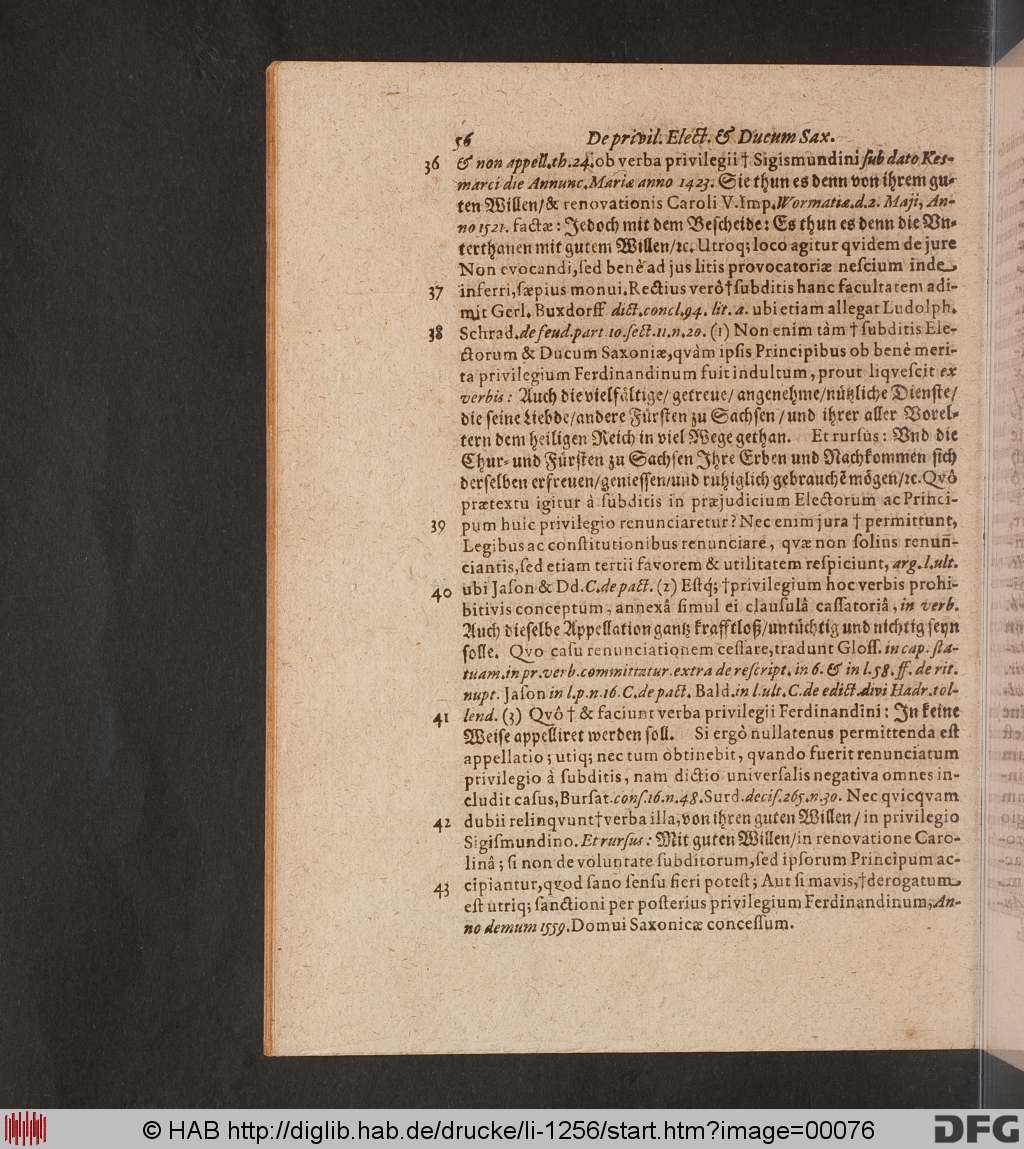 56 De privil. Elect. & Ducum Sax.
36 & non appell. th. 24. ob verba privilegii † Sigismundini sub dato Kes-
marci die Annunc. Mariæ anno 1423. Sie thun es denn von ihrem gu-
ten Willen/ & renovationis Caroli V. Imp. Wormatiæ. d. 2. Maji, An-
no 1521. factæ: Jedoch mit dem Bescheide: Es thun es denn die Vn-
terthanen mit gutem Willen/ ꝛc. Utroq; loco agitur qvidem de jure
Non evocandi, sed benè ad jus litis provocatoriæ nescium inde
37 inferri, sæpius monui. Rectius verò † subditis hanc facultatem adi-
mit Gerl. Buxdorff dict. concl. 94. lit. a. ubi etiam allegat Ludolph.
38 Schrad. de feud. part 10. sect. 11. n. 20. (1) Non enim tàm † subditis Ele-
ctorum & Ducum Saxoniæ, qvàm ipsis Principibus ob benè meri-
ta privilegium Ferdinandinum fuit indultum, prout liqvescit ex
verbis: Auch die vielfältige/ getreue/ angenehme/ nützliche Dienste/
die seine Liebde/ andere Fürsten zu Sachsen/ und ihrer aller Vorel-
tern dem heiligen Reich in viel Wege gethan. Et rursus: Vnd die
Chur- und Fürsten zu Sachsen Ihre Erben und Nachkommen sich
derselben erfreuen/ geniessen/ und ruhiglich gebrauchẽ mögen/ ꝛc. Qvô
prætextu igitur à subditis in præjudicium Electorum ac Princi-
39 pum huic privilegio renunciaretur? Nec enim jura † permittunt,
Legibus ac constitutionibus renunciare, qvæ non solius renun-
ciantis, sed etiam tertii favorem & utilitatem respiciunt, arg. l. ult.
40 ubi Jason & Dd. C. de pact. (2) Estq́; † privilegium hoc verbis prohi-
bitivis conceptum, annexâ simul ei clausulâ cassatoriâ, in verb.
Auch dieselbe Appellation gantz krafftloß/ untüchtig und nichtig seyn
solle. Qvo casu renunciationem cessare, tradunt Gloss. in cap. sta-
tuam. in pr. verb. committatur. extra de rescript. in 6. & in l. 58. ff. de rit.
nupt. Jason in l. p. n. 16. C. de pact. Bald. in l. ult. C. de edict. divi Hadr. tol-
41 lend. (3) Qvô † & faciunt verba privilegii Ferdinandini: In keine
Weise appelliret werden soll. Si ergò nullatenus permittenda est
appellatio; utiq; nec tum obtinebit, qvando fuerit renunciatum
privilegio à subditis, nam dictio universalis negativa omnes in-
cludit casus, Bursat. cons. 16. n. 48. Surd. decis. 265. n. 30. Nec qvicqvam
42 dubii relinqvunt † verba illa, von ihren guten Willen/ in privilegio
Sigismundino. Et rursus: Mit guten Willen/ in renovatione Caro-
linâ; si non de voluntate subditorum, sed ipsorum Principum ac-
43 cipiantur, qvod sano sensu fieri potest; Aut si mavis, † derogatum
est utriq; sanctioni per posterius privilegium Ferdinandinum, An-
no demum 1559. Domui Saxonicæ concessum.
© HAB http://diglib.hab.de/drucke/li-1256/start.htm?image=00076
DFG